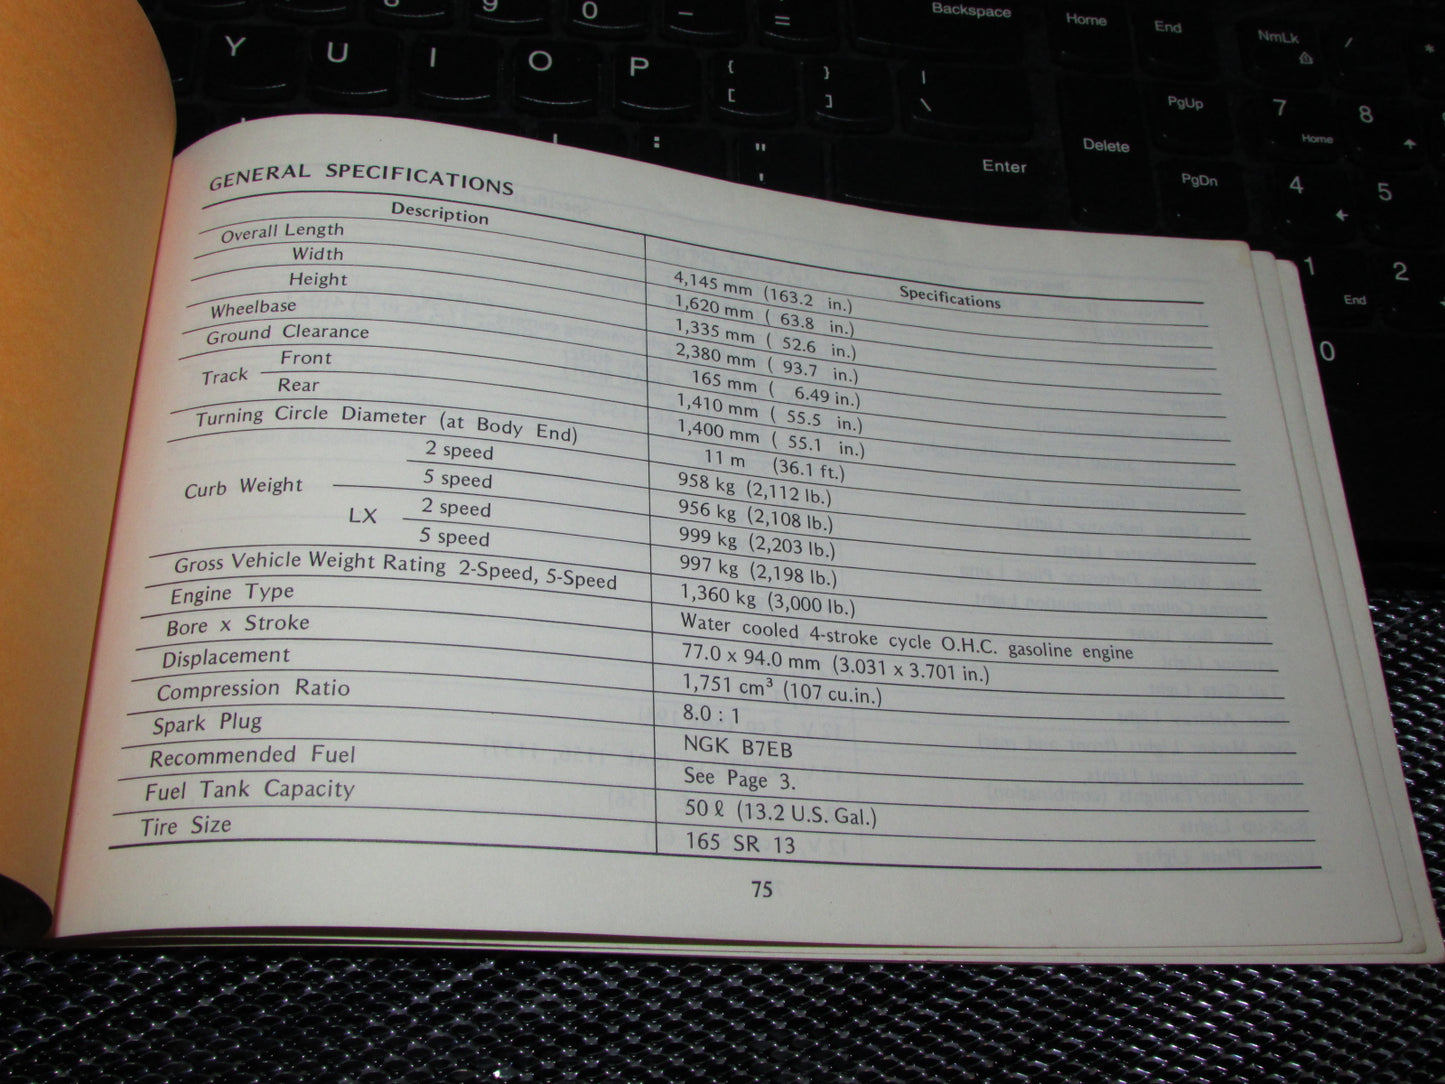 9 0 – =
Backspace Home End NmLk / *
Y U I O P { [ } ] | \
Delete PgUp 7 Home 8
: ; " ' Enter PgDn 4 5
1 End 2
0
GENERAL SPECIFICATIONS
Description Specifications
Overall Length 4,145 mm (163.2 in.)
Width 1,620 mm ( 63.8 in.)
Height 1,335 mm ( 52.6 in.)
Wheelbase 2,380 mm ( 93.7 in.)
Ground Clearance 165 mm ( 6.49 in.)
Track Front 1,410 mm ( 55.5 in.)
Rear 1,400 mm ( 55.1 in.)
Turning Circle Diameter (at Body End) 11 m (36.1 ft.)
Curb Weight 2 speed 958 kg (2,112 lb.)
5 speed 956 kg (2,108 lb.)
LX 2 speed 999 kg (2,203 lb.)
5 speed 997 kg (2,198 lb.)
Gross Vehicle Weight Rating 2-Speed, 5-Speed 1,360 kg (3,000 lb.)
Engine Type Water cooled 4-stroke cycle O.H.C. gasoline engine
Bore x Stroke 77.0 x 94.0 mm (3.031 x 3.701 in.)
Displacement 1,751 cm³ (107 cu.in.)
Compression Ratio 8.0 : 1
Spark Plug NGK B7EB
Recommended Fuel See Page 3.
Fuel Tank Capacity 50 ℓ (13.2 U.S. Gal.)
Tire Size 165 SR 13
75